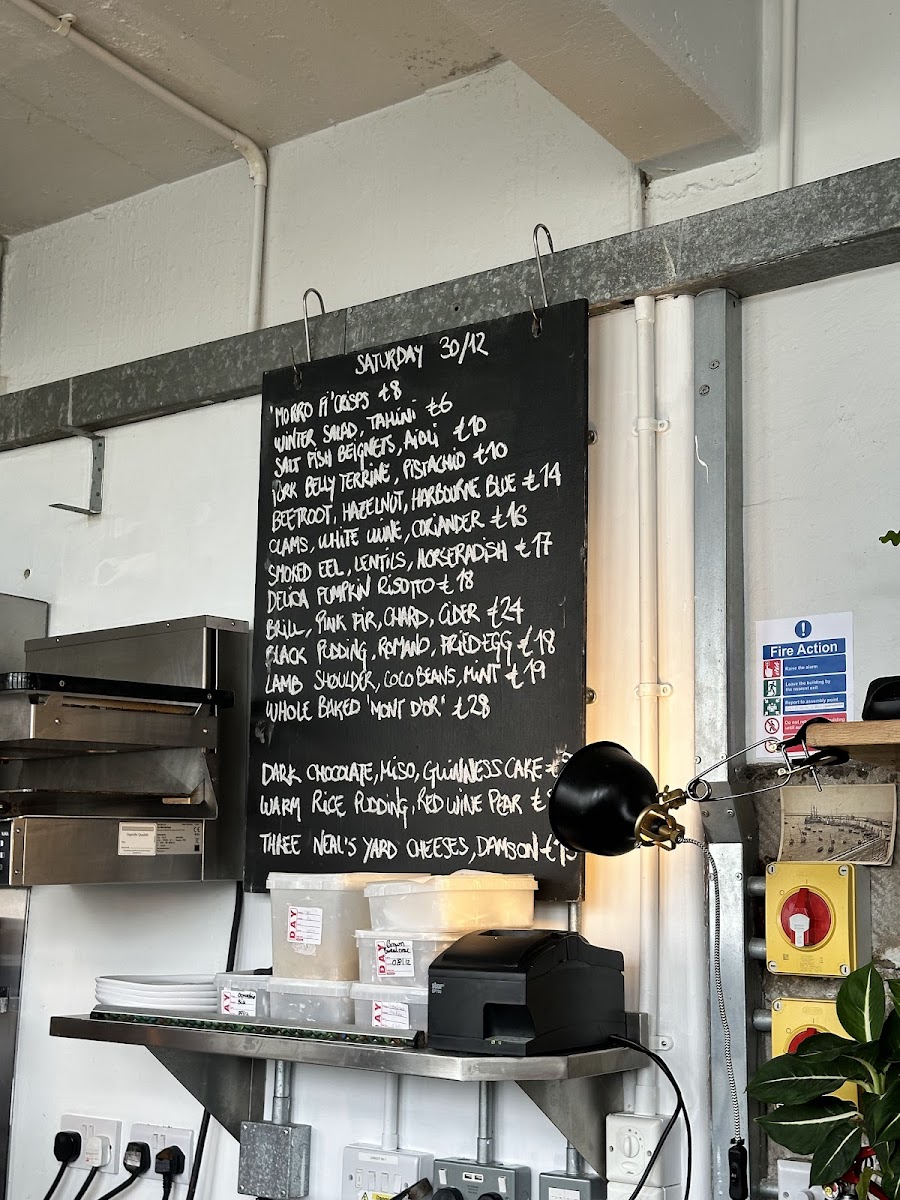 SATURDAY 30/12
'MORRO FI' CRISPS £8
WINTER SALAD, TAHINI £6
SALT FISH BEIGNETS, AIOLI £10
PORK BELLY TERRINE, PISTACHIO £10
BEETROOT, HAZELNUT, HARBOURNE BLUE £14
CLAMS, WHITE WINE, CORIANDER £16
SMOKED EEL, LENTILS, HORSERADISH £17
DELICA PUMPKIN RISOTTO £18
BRILL, PINK FIR, CHARD, CIDER £24
BLACK PUDDING, ROMANO, FRIED EGG £18
LAMB SHOULDER, COCO BEANS, MINT £19
WHOLE BAKED 'MONT D'OR' £28
DARK CHOCOLATE, MISO, GUINNESS CAKE
WARM RICE PUDDING, RED WINE PEAR
THREE NEAL'S YARD CHEESES, DAMSON
Fire Action
Raise the alarm
Leave the building by
the nearest exit
Report to assembly point
DAY
DAY
star